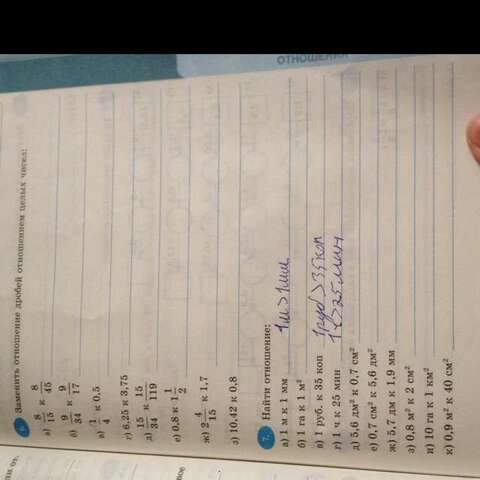 ОТНОШЕНИЯ
6. Заменить отношение дробей отношением целых чисел:
а) 8/15 к 8/45
б) 9/34 к 9/17
в) 1/4 к 0,5
г) 6,25 к 3,75
д) 15/34 к 15/119
е) 0,8 к 1 1/2
ж) 2 4/15 к 1,7
з) 10,42 к 0,8
7. Найти отношение:
а) 1 м к 1 км 1м > 1мм
б) 1 га к 1 м²
в) 1 руб. к 35 коп 1руб > 35 коп
г) 1 ч к 25 мин 1ч > 25 мин
д) 5,6 дм² к 0,7 см²
е) 0,7 см² к 5,6 дм²
ж) 5,7 дм к 1,9 мм
з) 0,8 м² к 2 см²
и) 10 га к 1 км²
к) 0,9 м² к 40 см²